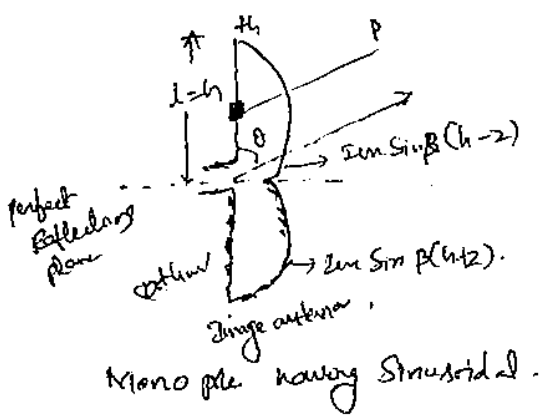 +h
P
l=h
θ
Im Sin β(h-z)
perfect
Reflecting
plane
Im Sin β(h+z).
Image antenna,
Monopole having Sinusoidal.